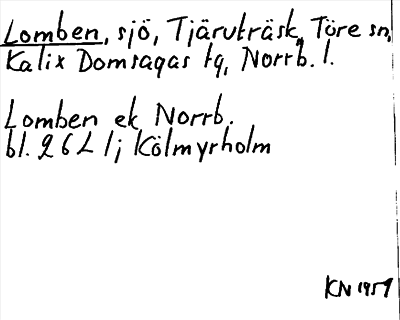 Lomben, sjö, Tjäruträsk, Töre sn,
Kalix Domsagas tg, Norrb. l.
Lomben ek Norrb.
bl. 26L 1j Kölmyrholm
KN 1959